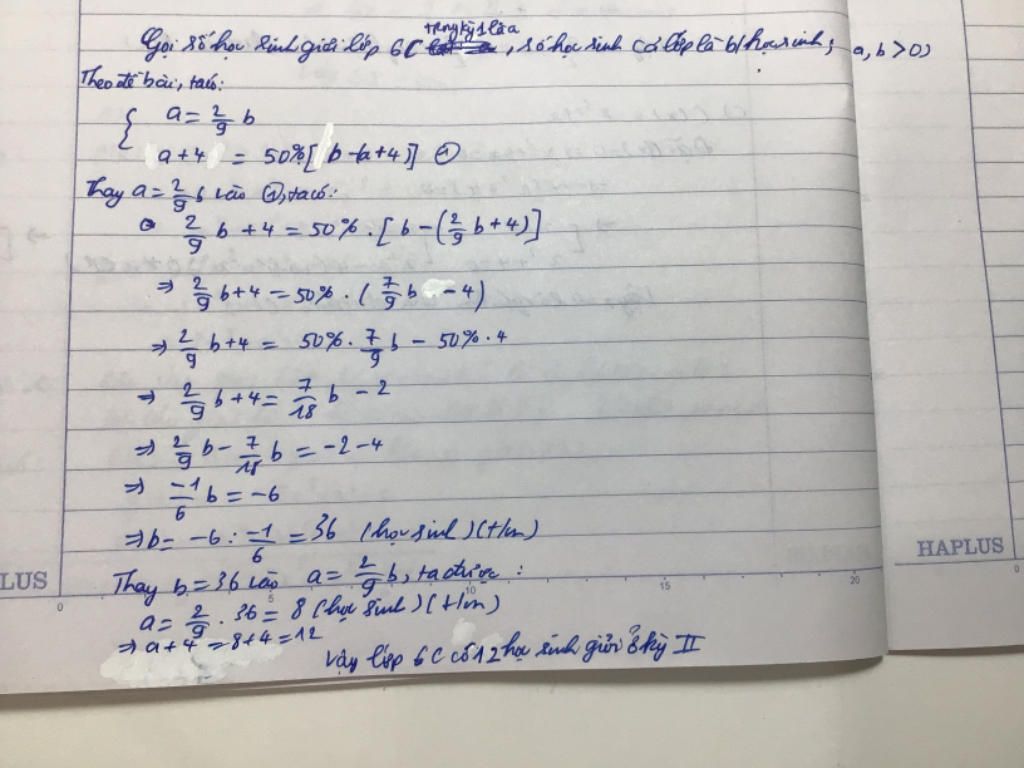 trong kỳ 1 là a
Gọi số học sinh giỏi lớp 6C , số học sinh cả lớp là b (học sinh; a, b > 0)
Theo đề bài, ta có:
{ a = 2/9 b
a + 4 = 50% [ b - (a + 4)] ①
Thay a = 2/9 b vào ①, ta có:
2/9 b + 4 = 50% . [ b - (2/9 b + 4)]
⇒ 2/9 b + 4 = 50% . (7/9 b - 4)
⇒ 2/9 b + 4 = 50% . 7/9 b - 50% . 4
⇒ 2/9 b + 4 = 7/18 b - 2
⇒ 2/9 b - 7/18 b = -2 - 4
⇒ -1/6 b = -6
⇒ b = -6 : -1/6 = 36 (học sinh) (t/m)
Thay b = 36 vào a = 2/9 b, ta được :
a = 2/9 . 36 = 8 (học sinh) (t/m)
⇒ a + 4 = 8 + 4 = 12
Vậy lớp 6C có 12 học sinh giỏi ở kỳ II
LUS
HAPLUS
0 5 10 15 20
0